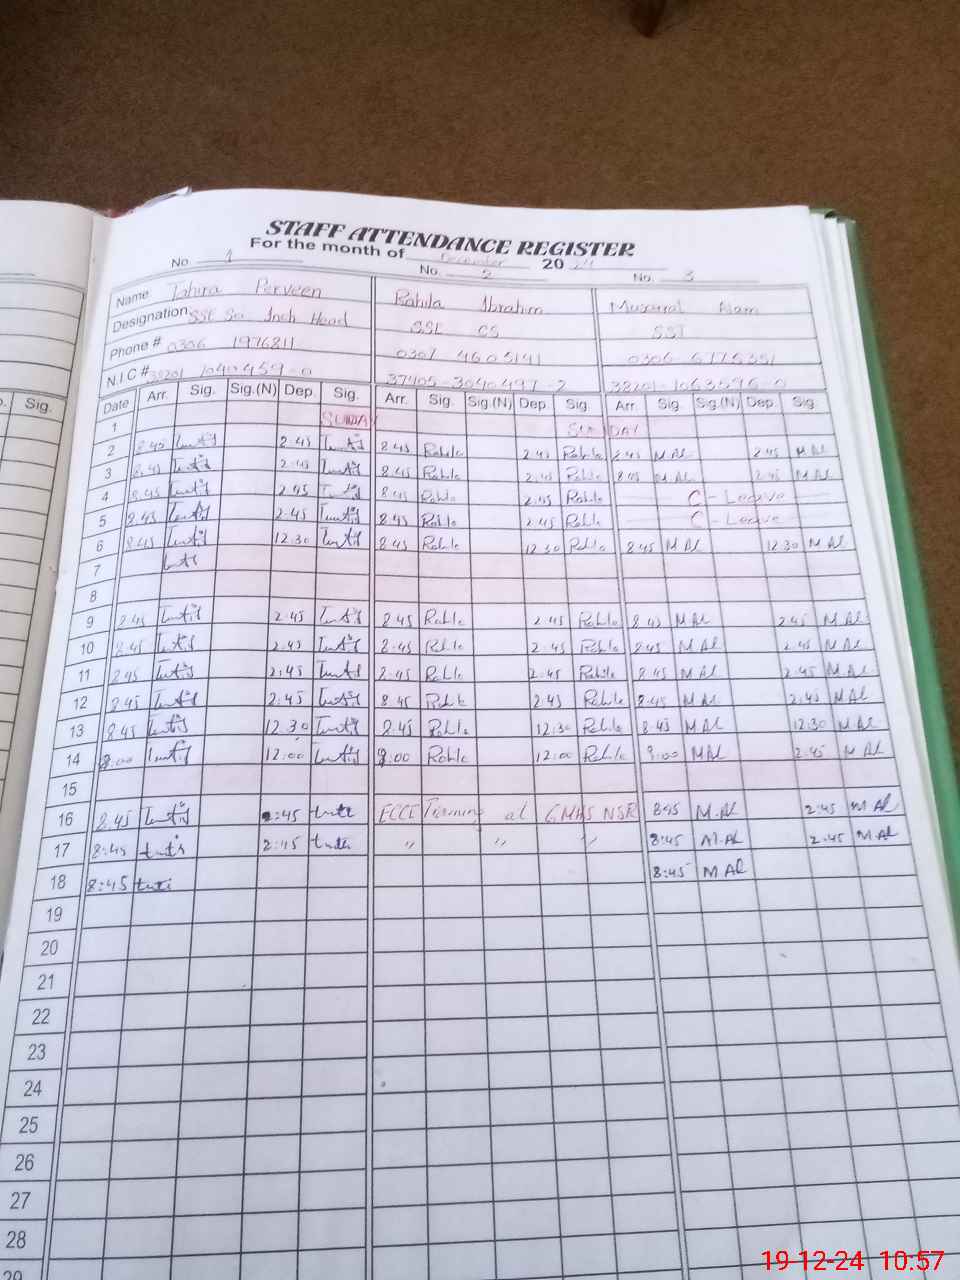 STAFF ATTENDANCE REGISTER
For the month of December 2024
No. 1 No. 2 No. 3
Name Tahira Perveen Rahila Ibrahim Musarrat Alam
Designation SSE Sci Inch Head SSE CS SST
Phone # 0306 1976811 0307 4605141 0306 6175351
N.I.C # 38201 1040459-0 37405-3040497-2 38201-1063596-0
Date Arr. Sig. Sig.(N) Dep. Sig. Arr. Sig. Sig.(N) Dep. Sig. Arr. Sig. Sig.(N) Dep. Sig.
o. Sig.
1 SUNDAY SUNDAY
2 8.45 2.45 8.45 Rahila 2.45 Rahila 2.45 M Al 2.45 M Al
3 8.45 2.45 8.45 Rahila 2.45 Rahila 8.45 M Al 2.45 M Al
4 8.45 2.45 8.45 Rahila 2.45 Rahila C - Leave
5 8.45 2.45 8.45 Rahila 2.45 Rahila C - Leave
6 8.45 12.30 8.45 Rahila 12.30 Rahila 8.45 M Al 12.30 M Al
7
8
9 8.45 2.45 8.45 Rahila 2.45 Rahila 8.45 M Al 2.45 M Al
10 8.45 2.45 8.45 Rahila 2.45 Rahila 8.45 M Al 2.45 M Al
11 8.45 2.45 8.45 Rahila 2.45 Rahila 8.45 M Al 2.45 M Al
12 8.45 2.45 8.45 Rahila 2.45 Rahila 8.45 M Al 2.45 M Al
13 8.45 12.30 8.45 Rahila 12.30 Rahila 8.45 M Al 12.30 M Al
14 9.00 12.00 9.00 Rahila 12.00 Rahila 9.00 M Al 2.45 M Al
15
16 8.45 2:45 ECCE Training at GMHS NSR 8:45 M.Al 2:45 M Al
17 8:45 2:45 " " " 8:45 M.Al 2:45 M.Al
18 8:45 8:45 M Al
19
20
21
22
23
24
25
26
27
28
29
19-12-24 10:57